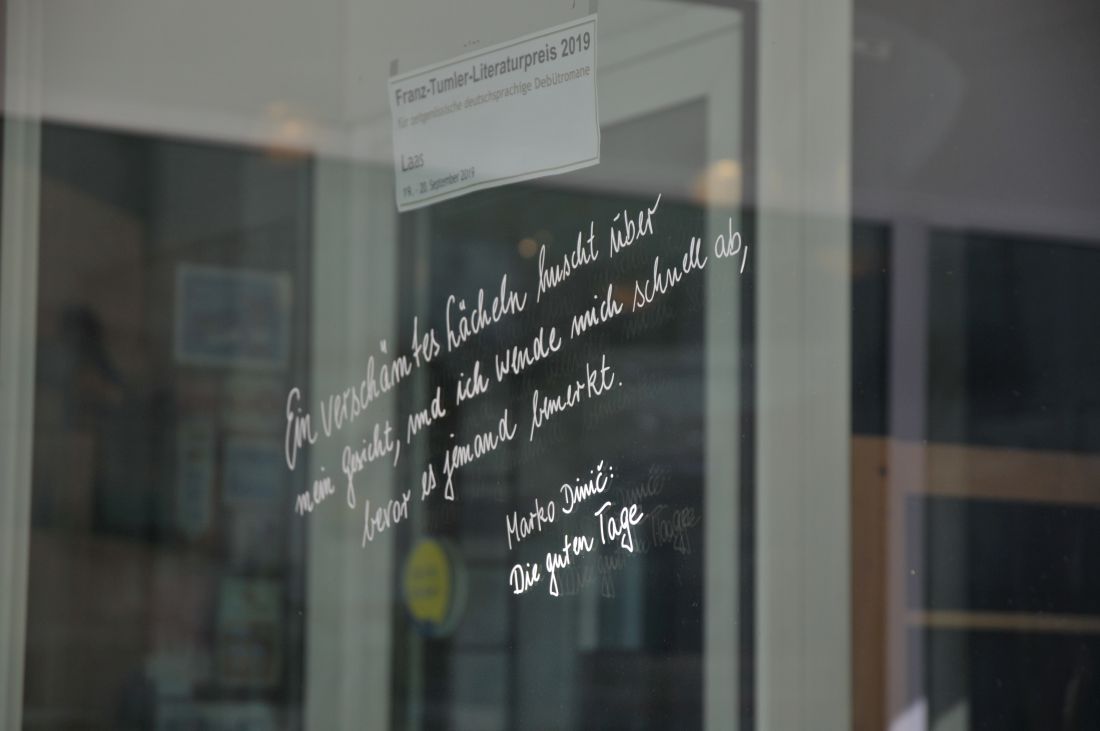 Franz-Tumler-Literaturpreis 2019
für zeitgenössische deutschsprachige Debütromane
Laas
19. - 20. September 2019
Ein verschämtes Lächeln huscht über
mein Gesicht, und ich wende mich schnell ab,
bevor es jemand bemerkt.
Marko Dinić:
Die guten Tage